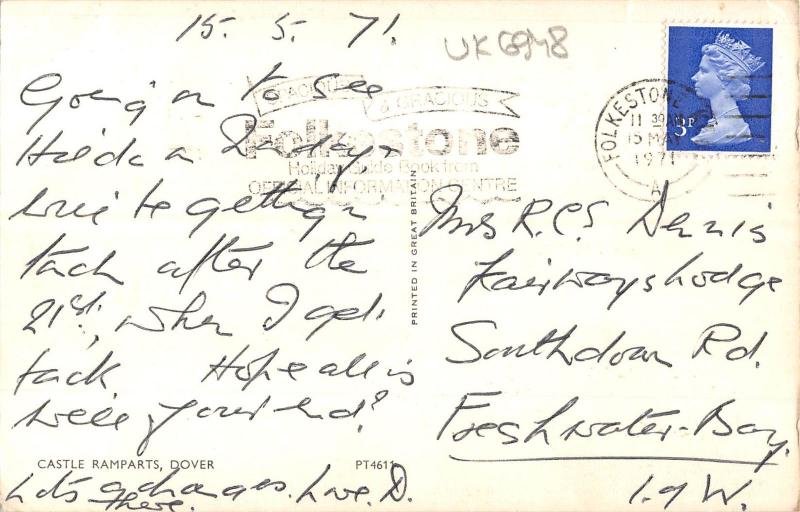 15. 5. 71.
UK6948
Going on to see
Hilda on Sunday.
will be getting in
touch after the
21st, when I get
back Hope all is
well your end?
CASTLE RAMPARTS, DOVER
PT4611
Lots of changes. Love. D.
there.
SPACIOUS
& GRACIOUS
Folkestone
Holiday Guide Book from
OFFICIAL INFORMATION CENTRE
PRINTED IN GREAT BRITAIN
FOLKESTONE
11 30AM
15 MAY
1971
A
3P
Mrs R.C.S Dennis
Fairways Lodge
Southdown Rd.
Freshwater-Bay.
I.of W.